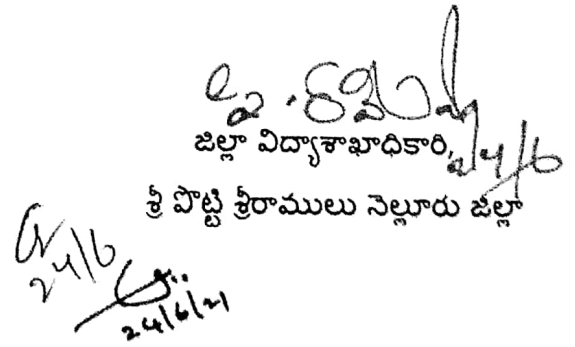 24/6
జిల్లా విద్యాశాఖాధికారి,
శ్రీ పొట్టి శ్రీరాములు నెల్లూరు జిల్లా
24/6
24/6/21